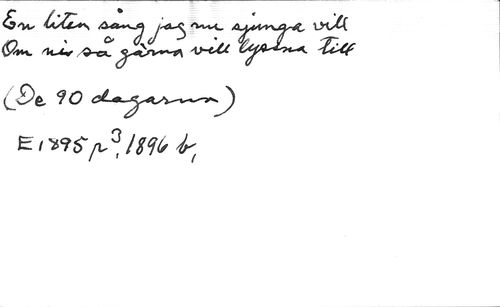 En liten sång jag nu sjunga vill
Om ni så gärna vill lyssna till
(De 90 dagarna)
E 1895 p3, 1896 b,